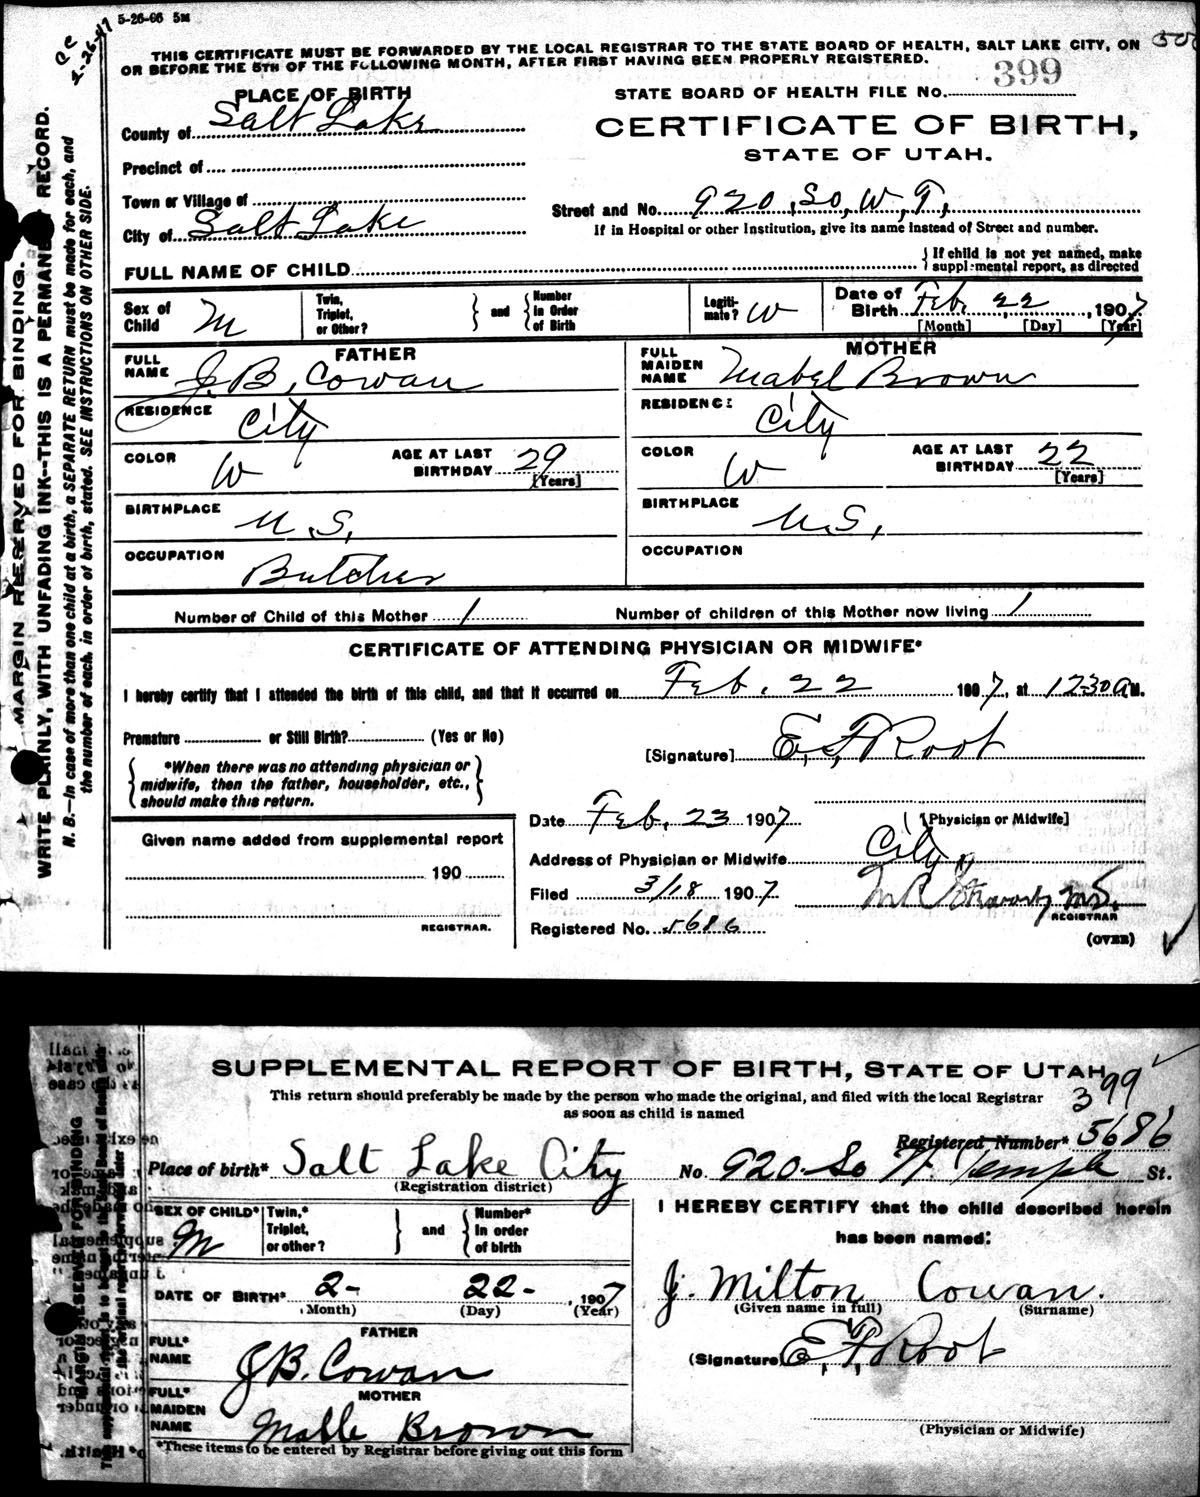 5-26-06 5M
THIS CERTIFICATE MUST BE FORWARDED BY THE LOCAL REGISTRAR TO THE STATE BOARD OF HEALTH, SALT LAKE CITY, ON
OR BEFORE THE 5TH OF THE FOLLOWING MONTH, AFTER FIRST HAVING BEEN PROPERLY REGISTERED.
399
STATE BOARD OF HEALTH FILE No.
PLACE OF BIRTH
County of Salt Lake
CERTIFICATE OF BIRTH,
STATE OF UTAH.
Precinct of
Town or Village of
City of Salt Lake
Street and No. 920, So, W, T,
If in Hospital or other Institution, give its name instead of Street and number.
FULL NAME OF CHILD
If child is not yet named, make
supplemental report, as directed
Sex of Child M
Twin, Triplet, or Other?
and
Number in Order of Birth
Legitimate? W
Date of Birth Feb, 22, 1907
[Month] [Day] [Year]
FATHER
FULL NAME J. B, Cowan
RESIDENCE City
COLOR W
AGE AT LAST BIRTHDAY 29
[Years]
BIRTHPLACE U. S,
OCCUPATION Butcher
MOTHER
FULL MAIDEN NAME Mabel Brown
RESIDENCE City
COLOR W
AGE AT LAST BIRTHDAY 22
[Years]
BIRTHPLACE U.S,
OCCUPATION
Number of Child of this Mother 1
Number of children of this Mother now living 1
CERTIFICATE OF ATTENDING PHYSICIAN OR MIDWIFE*
I hereby certify that I attended the birth of this child, and that it occurred on Feb. 22 1907, at 1230 a M.
Premature or Still Birth? (Yes or No)
[Signature] E, F, Root
*When there was no attending physician or
midwife, then the father, householder, etc.,
should make this return.
Date Feb, 23 1907
[Physician or Midwife]
Given name added from supplemental report
190
REGISTRAR.
Address of Physician or Midwife City
Filed 3/18 1907
REGISTRAR
Registered No. 5686
(OVER)
MARGIN RESERVED FOR BINDING.
WRITE PLAINLY, WITH UNFADING INK--THIS IS A PERMANENT RECORD.
N. B.—In case of more than one child at a birth, a SEPARATE RETURN must be made for each, and
the number of each, in order of birth, stated. SEE INSTRUCTIONS ON OTHER SIDE.
SUPPLEMENTAL REPORT OF BIRTH, STATE OF UTAH
This return should preferably be made by the person who made the original, and filed with the local Registrar
as soon as child is named
399
Registered Number* 5686
Place of birth* Salt Lake City No. 920 So W. Temple St.
(Registration district)
SEX OF CHILD* M
Twin,* Triplet, or other?
and
Number* In order of birth
I HEREBY CERTIFY that the child described herein
has been named:
DATE OF BIRTH* 2- 22- 1907
(Month) (Day) (Year)
J. Milton Cowan.
(Given name in full) (Surname)
FATHER
FULL* NAME J B. Cowan
(Signature) E, F, Root
MOTHER
FULL* MAIDEN NAME Mable Brown
(Physician or Midwife)
*These items to be entered by Registrar before giving out this form
MARGIN RESERVED FOR BINDING